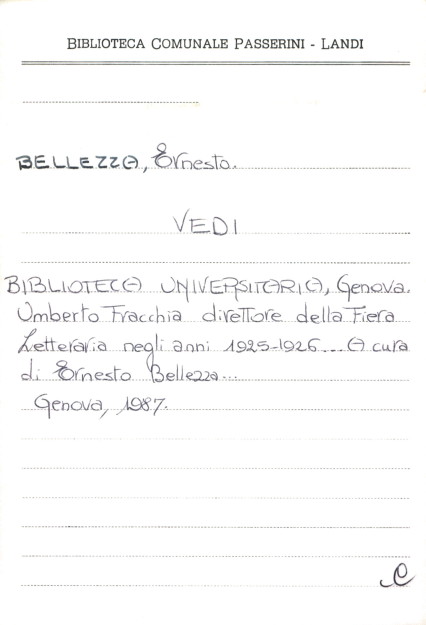 BIBLIOTECA COMUNALE PASSERINI - LANDI
BELLEZZA, Ernesto.
VEDI
BIBLIOTECA UNIVERSITARIA, Genova.
Umberto Fracchia direttore della Fiera
Letteraria negli anni 1925-1926... A cura
di Ernesto Bellezza...
Genova, 1987.
C